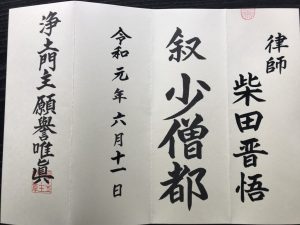 律師
柴田晋悟
叙 少僧都
令和元年六月十一日
浄土門主 願譽唯眞